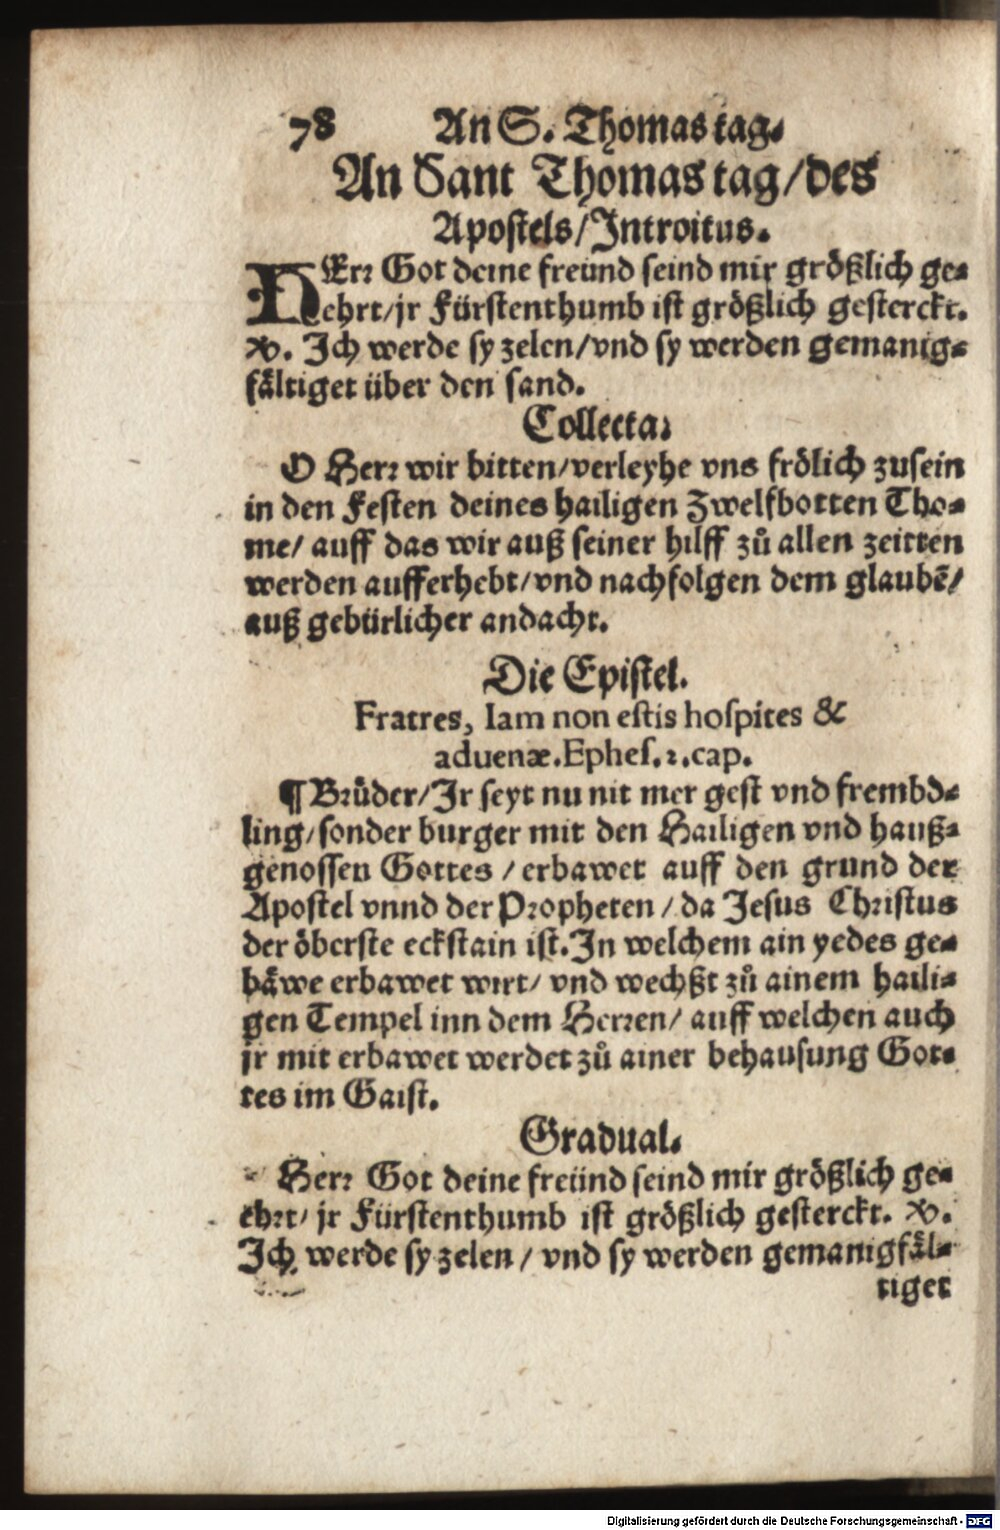 78 An S. Thomas tag.
An Sant Thomas tag/des
Apostels/Introitus.
HErr Got deine freünd seind mir größlich ge-
ehrt/jr Fürstenthumb ist größlich gesterckt.
℣. Ich werde sy zelen/vnd sy werden gemanig-
fältiget über den sand.
Collecta.
O Herr wir bitten/verleyhe vns frölich zusein
in den Festen deines hailigen Zwelfbotten Tho-
me/ auff das wir auß seiner hilff zů allen zeitten
werden aufferhebt/vnd nachfolgen dem glaubē/
auß gebürlicher andacht.
Die Epistel.
Fratres, Iam non estis hospites &
aduenæ. Ephes. 2. cap.
¶ Brůder/Ir seyt nu nit mer gest vnd frembd-
ling/sonder burger mit den Hailigen vnd hauß-
genossen Gottes / erbawet auff den grund der
Apostel vnnd der Propheten / da Jesus Christus
der öberste eckstain ist. In welchem ain yedes ge-
bäwe erbawet wirt/ vnd wechßt zů ainem haili-
gen Tempel inn dem Herren/ auff welchen auch
jr mit erbawet werdet zů ainer behausung Got-
tes im Gaist.
Gradual.
Herr Got deine freünd seind mir größlich ge-
ehrt/ jr Fürstenthumb ist größlich gesterckt. ℣.
Ich werde sy zelen / vnd sy werden gemanigfäl-
tiget
Digitalisierung gefördert durch die Deutsche Forschungsgemeinschaft - DFG